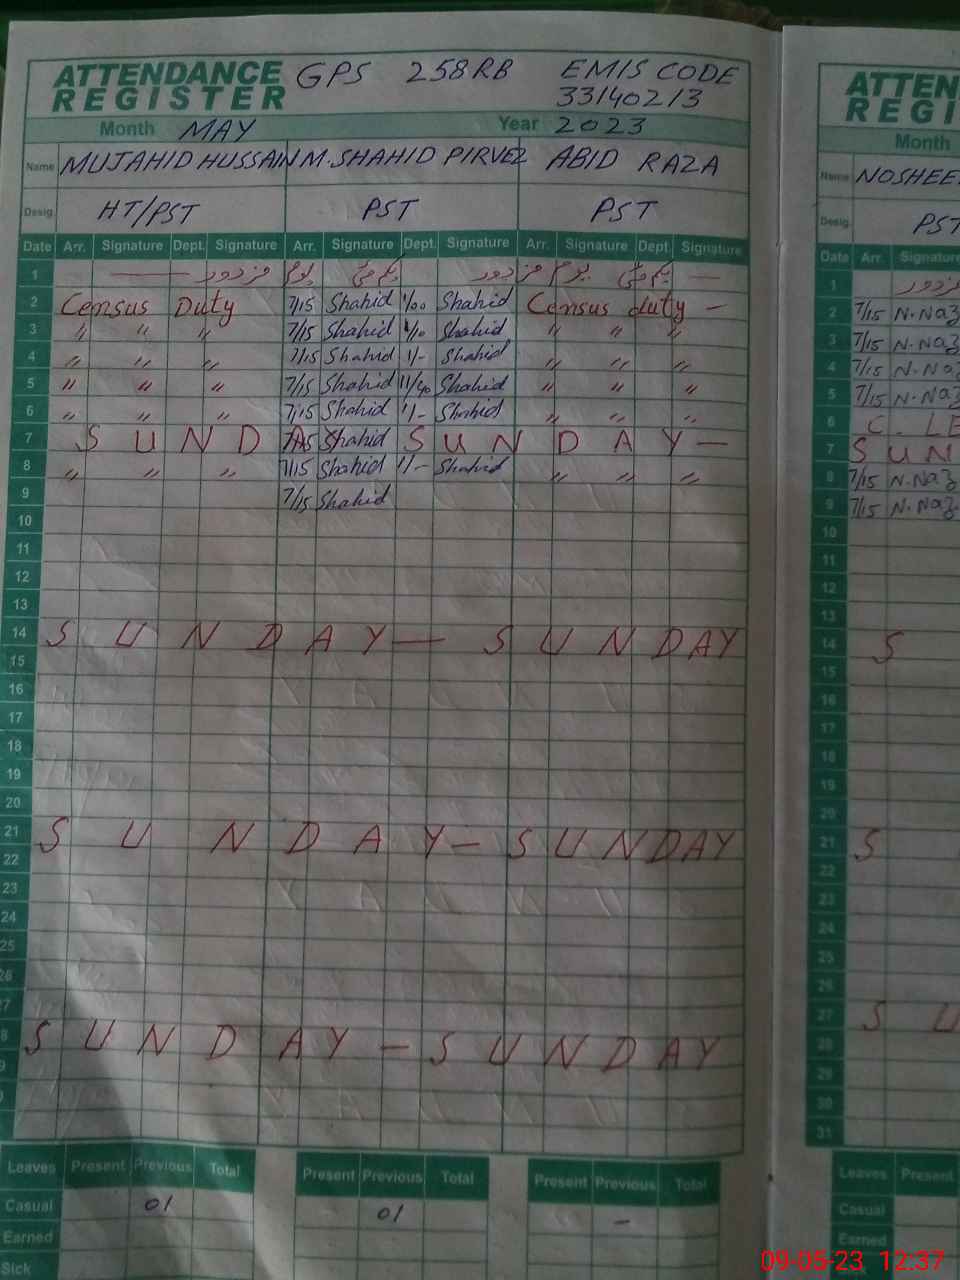 ATTENDANCE REGISTER GPS 258RB EMIS CODE 33140213
Month MAY Year 2023
Name MUJAHID HUSSAIN M. SHAHID PIRVEZ ABID RAZA
Desig. HT/PST PST PST
Date Arr. Signature Dept. Signature Arr. Signature Dept. Signature Arr. Signature Dept. Signature
1 یکم مئی یوم مزدور
2 Census Duty 7/15 Shahid 1/00 Shahid Census duty —
3 " " " 7/15 Shahid Shahid " " "
4 " " " 7/15 Shahid 1/- Shahid " " "
5 " " " 7/15 Shahid 11/40 Shahid " " "
6 " " " 7/15 Shahid 1/- Shahid " " "
7 SUNDAY 7/15 Shahid SUNDAY —
8 " " " 7/15 Shahid 1/- Shahid " " "
9 7/15 Shahid
10
11
12
13
14 SUNDAY — SUNDAY
15
16
17
18
19
20
21 SUNDAY — SUNDAY
22
23
24
25
26
27
28 SUNDAY — SUNDAY
Leaves Present Previous Total Present Previous Total Present Previous Total
Casual 01 01 –
Earned
Sick
Month
Name
Desig. PST
Date Arr. Signature
1 مزدور
2 7/15 N.Naz
3 7/15 N.Naz
4 7/15 N.Naz
5 7/15 N.Naz
6 C. LE
7 SUN
8 7/15 N.Naz
9 7/15 N.Naz
10
11
12
13
14 S
15
16
17
18
19
20
21 S
22
23
24
25
26
27 S U
28
29
30
31
Leaves Present
Casual
Earned
09-05-23 12:37